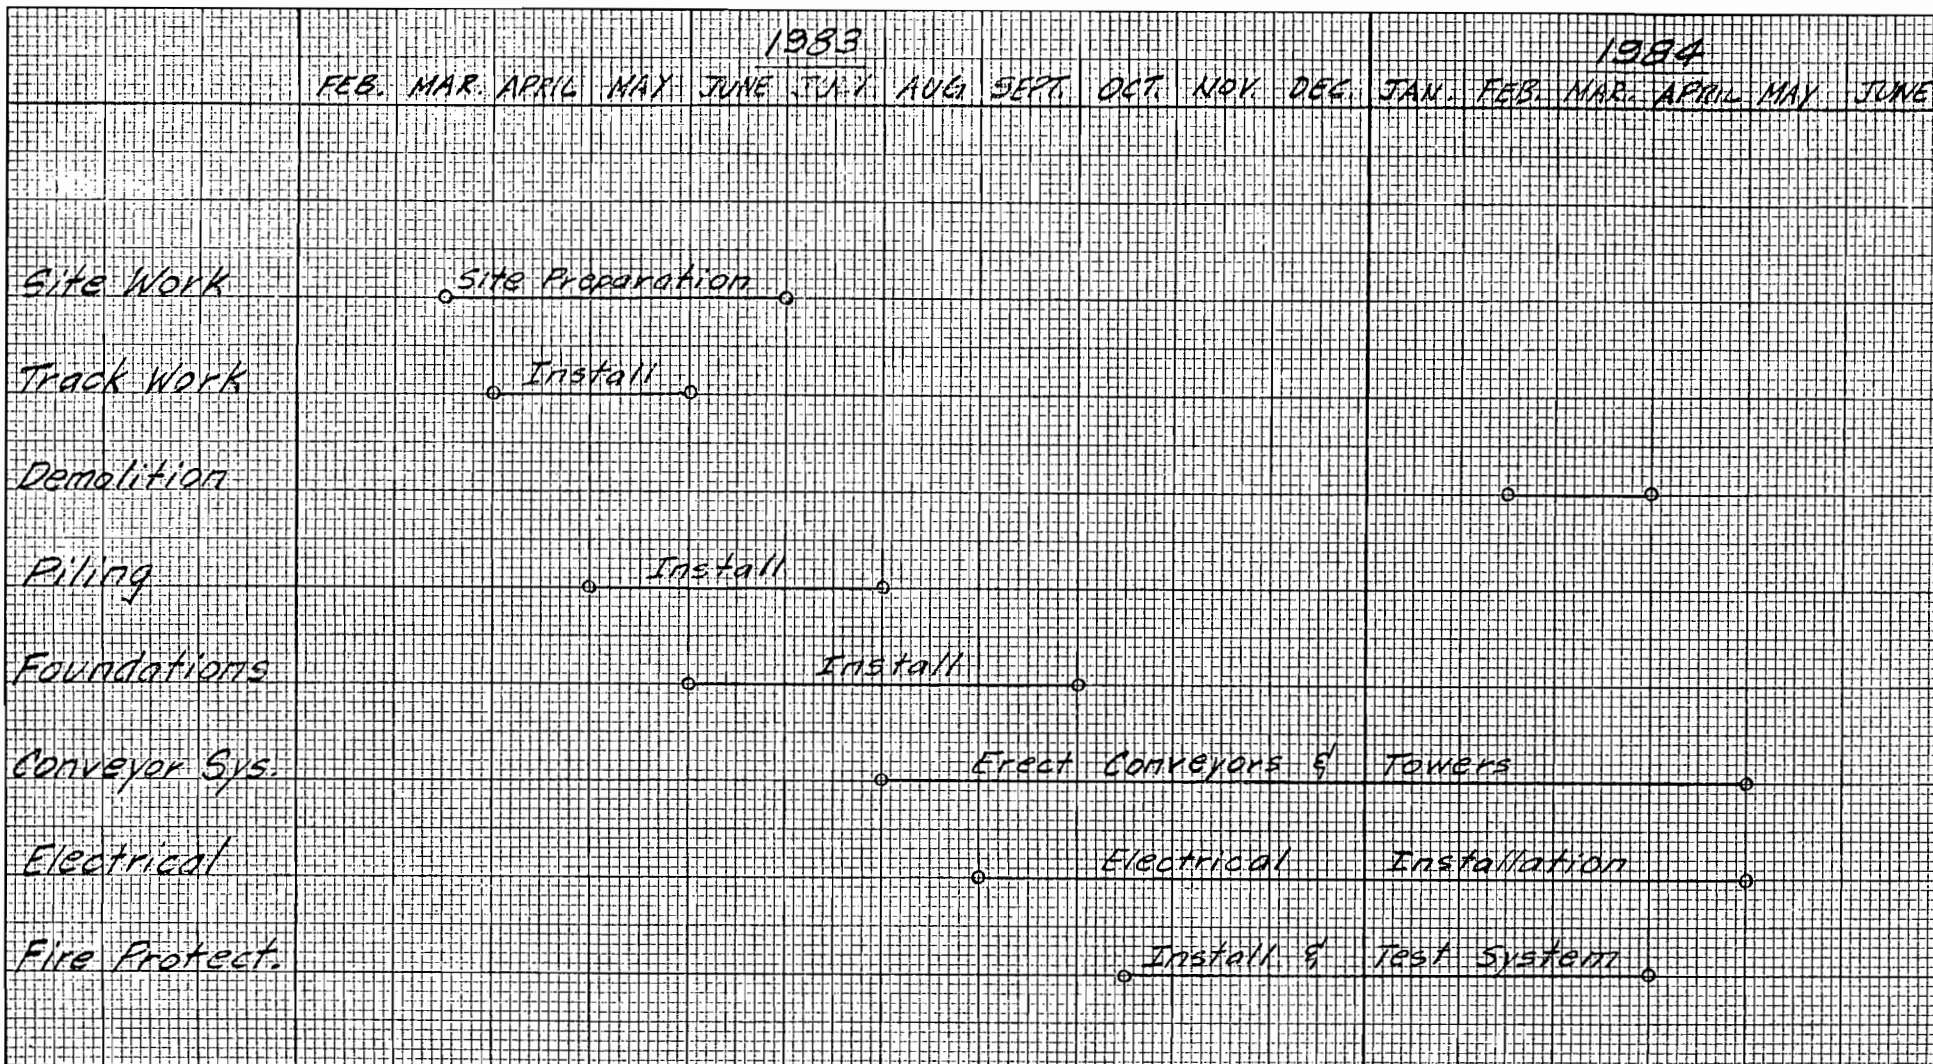 1983 1984
FEB. MAR. APRIL MAY JUNE JULY. AUG SEPT. OCT. NOV. DEC. JAN. FEB. MAR. APRIL MAY JUNE
Site Work Site Preparation
Track Work Install
Demolition
Piling Install
Foundations Install
Conveyor Sys. Erect Conveyors & Towers
Electrical Electrical Installation
Fire Protect. Install & Test System